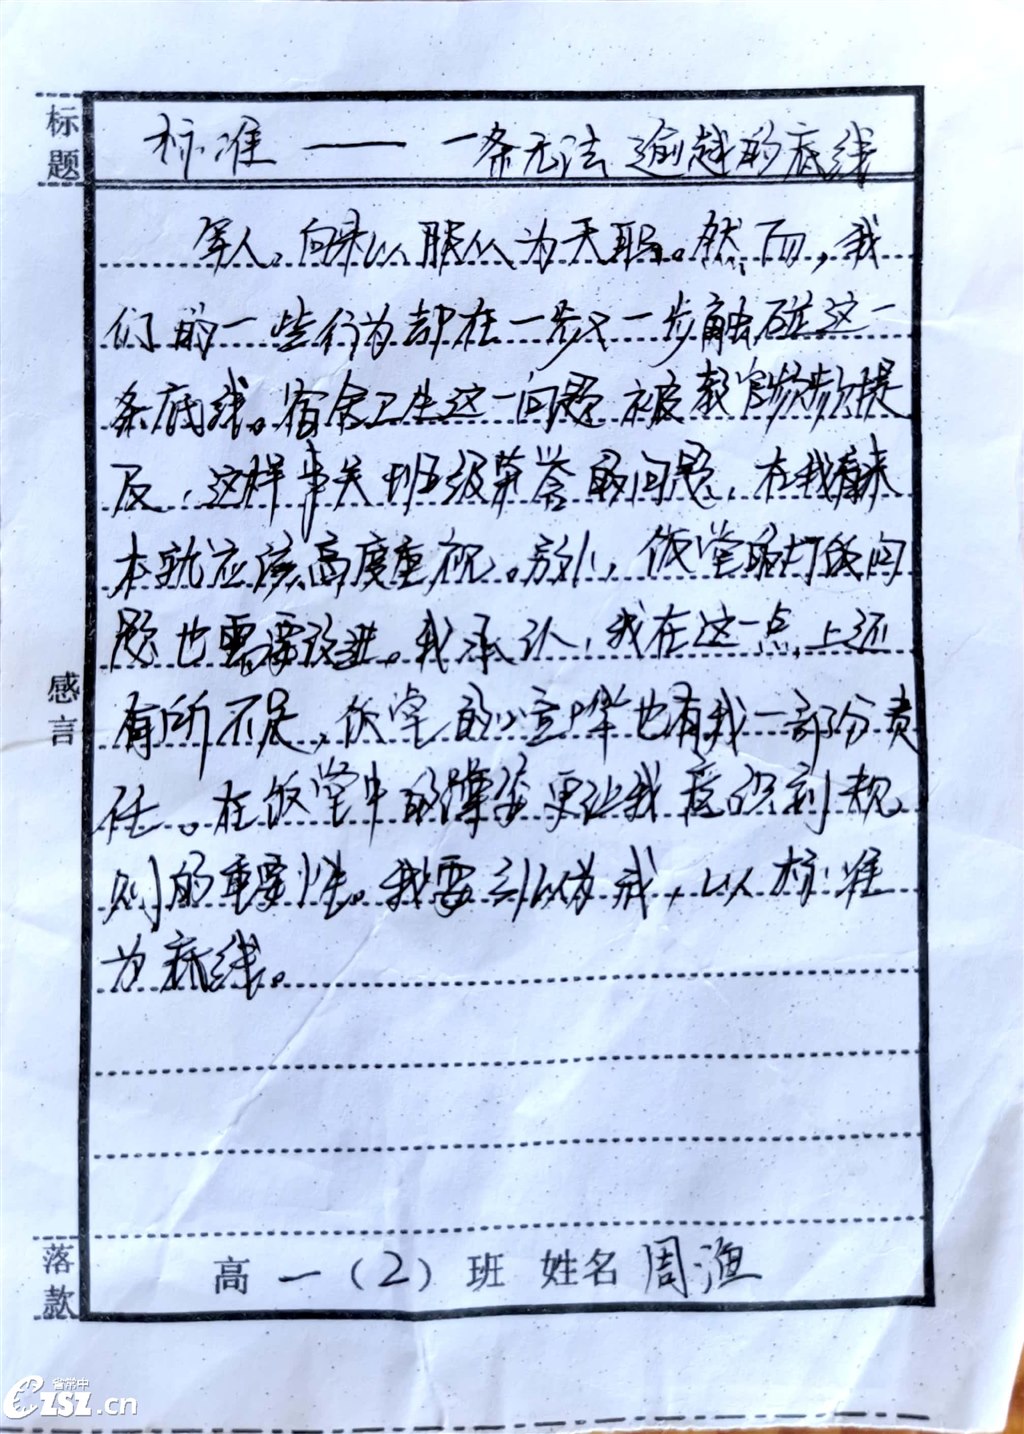 标题
标准——一条无法逾越的底线
军人,向来以服从为天职。然而,我
们的一些行为却在一步又一步触碰这一
条底线。宿舍卫生这一问题被教官频频提
及,这样事关班级荣誉的问题,在我看来
本就应该高度重视。另外,饭堂的打饭问
题也需要改进。我承认,我在这一点上还
有所不足,饭堂的喧哗也有我一部分责
任。在饭堂中的更让我意识到规
则的重要性。我要引以为戒,以标准
为底线。
感言
落款
高一(2)班 姓名 周渔
省常中
CZSZ.cn